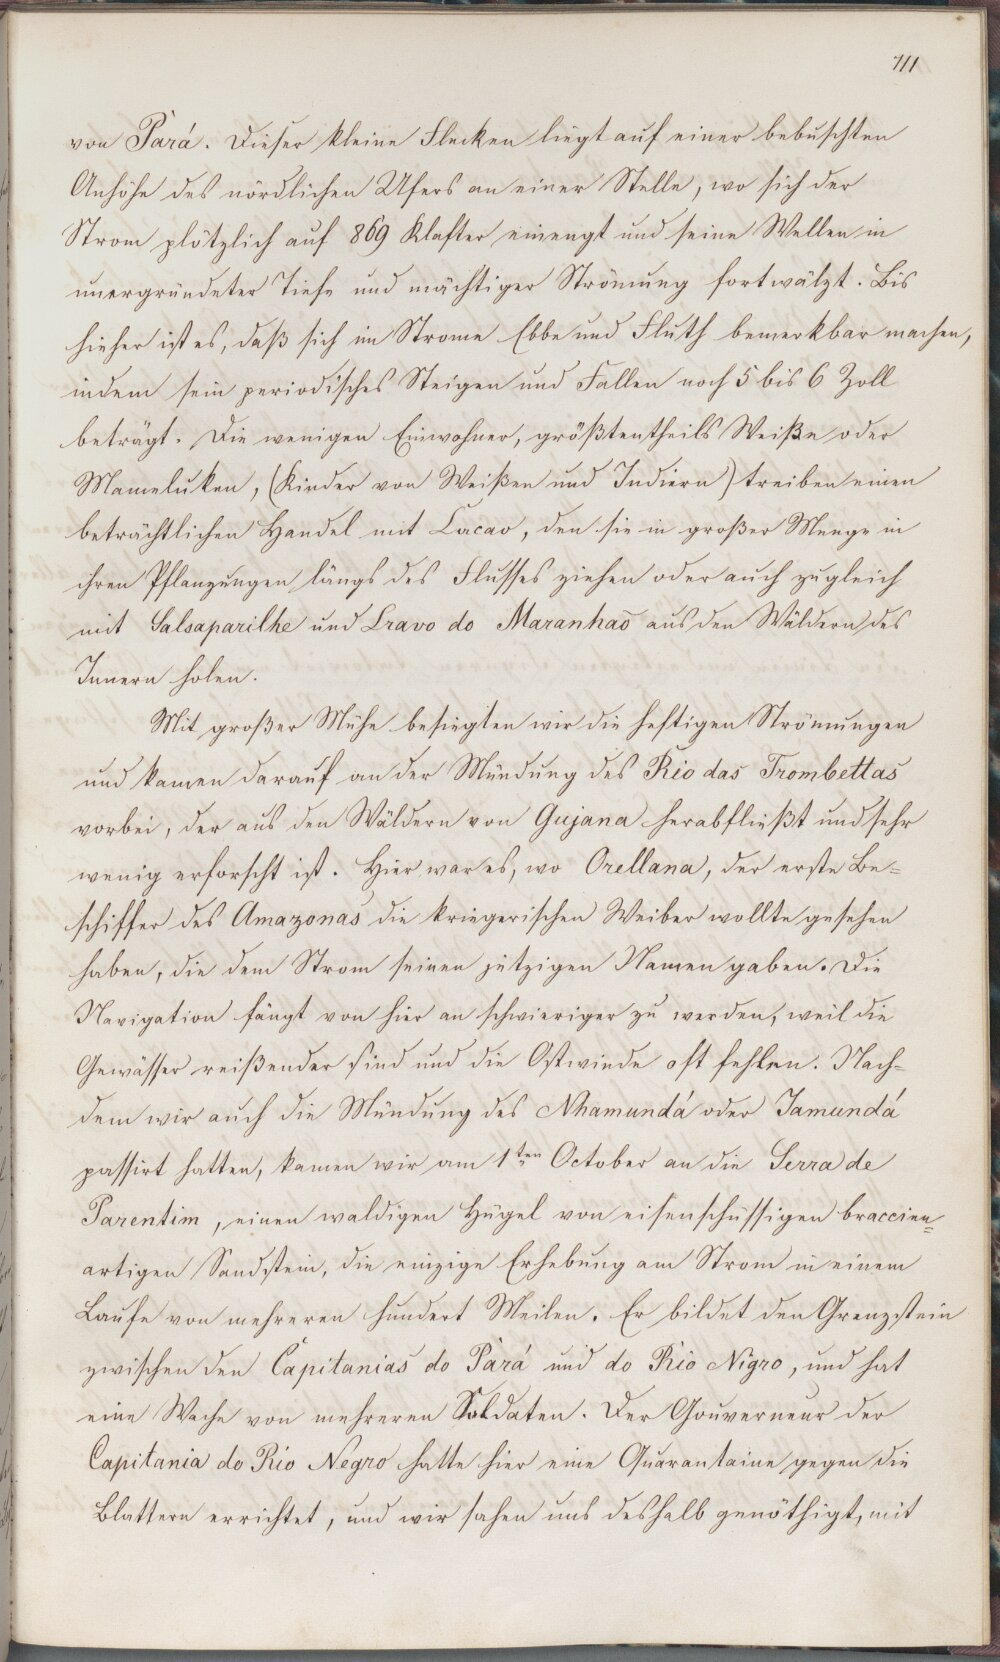 711
von Pará. Dieser kleine Flecken liegt auf einer bebuschten
Anhöhe des nördlichen Ufers an einer Stelle, wo sich der
Strom plötzlich auf 869 Klafter einengt und seine Wellen in
unergründeter Tiefe und mächtiger Strömung fortwälzt. Bis
hieher ist es, daß sich im Strome Ebbe und Fluth bemerkbar machen,
indem sein periodisches Steigen und Fallen noch 5 bis 6 Zoll
beträgt. Die wenigen Einwohner, größtentheils Weiße oder
Mameluken, (Kinder von Weißen und Indiern) treiben einen
beträchtlichen Handel mit Cacao, den sie in großer Menge in
ihren Pflanzungen längs des Flusses ziehen oder auch zugleich
mit Salsaparilhe und Cravo do Maranhaõ aus den Wäldern des
Innern holen.
Mit großer Mühe besiegten wir die heftigen Strömungen
und kamen darauf an der Mündung des Rio das Trombettas
vorbei, der aus den Wäldern von Gujana herabfließt und sehr
wenig erforscht ist. Hier war es, wo Orellana, der erste Be=
schiffer des Amazonas die kriegerischen Weiber wollte gesehen
haben, die dem Strom seinen jetzigen Namen gaben. Die
Navigation fängt von hier an schwieriger zu werden, weil die
Gewässer reißender sind und die Ostwinde oft fehlen. Nach=
dem wir auch die Mündung des Nhamundá oder Jamundá
passirt hatten, kamen wir am 1ten October an die Serra de
Parentim, einen waldigen Hügel von eisenschüssigen braccien=
artigen Sandstein, die einzige Erhebung am Strom in einem
Laufe von mehreren hundert Meilen. Er bildet den Grenzstein
zwischen den Capitanias do Pará und do Rio Nigro, und hat
eine Wache von mehreren Soldaten. Der Gouverneur der
Capitania do Rio Negro hatte hier eine Quarantaine gegen die
Blattern errichtet, und wir sahen uns deshalb genöthigt, mit